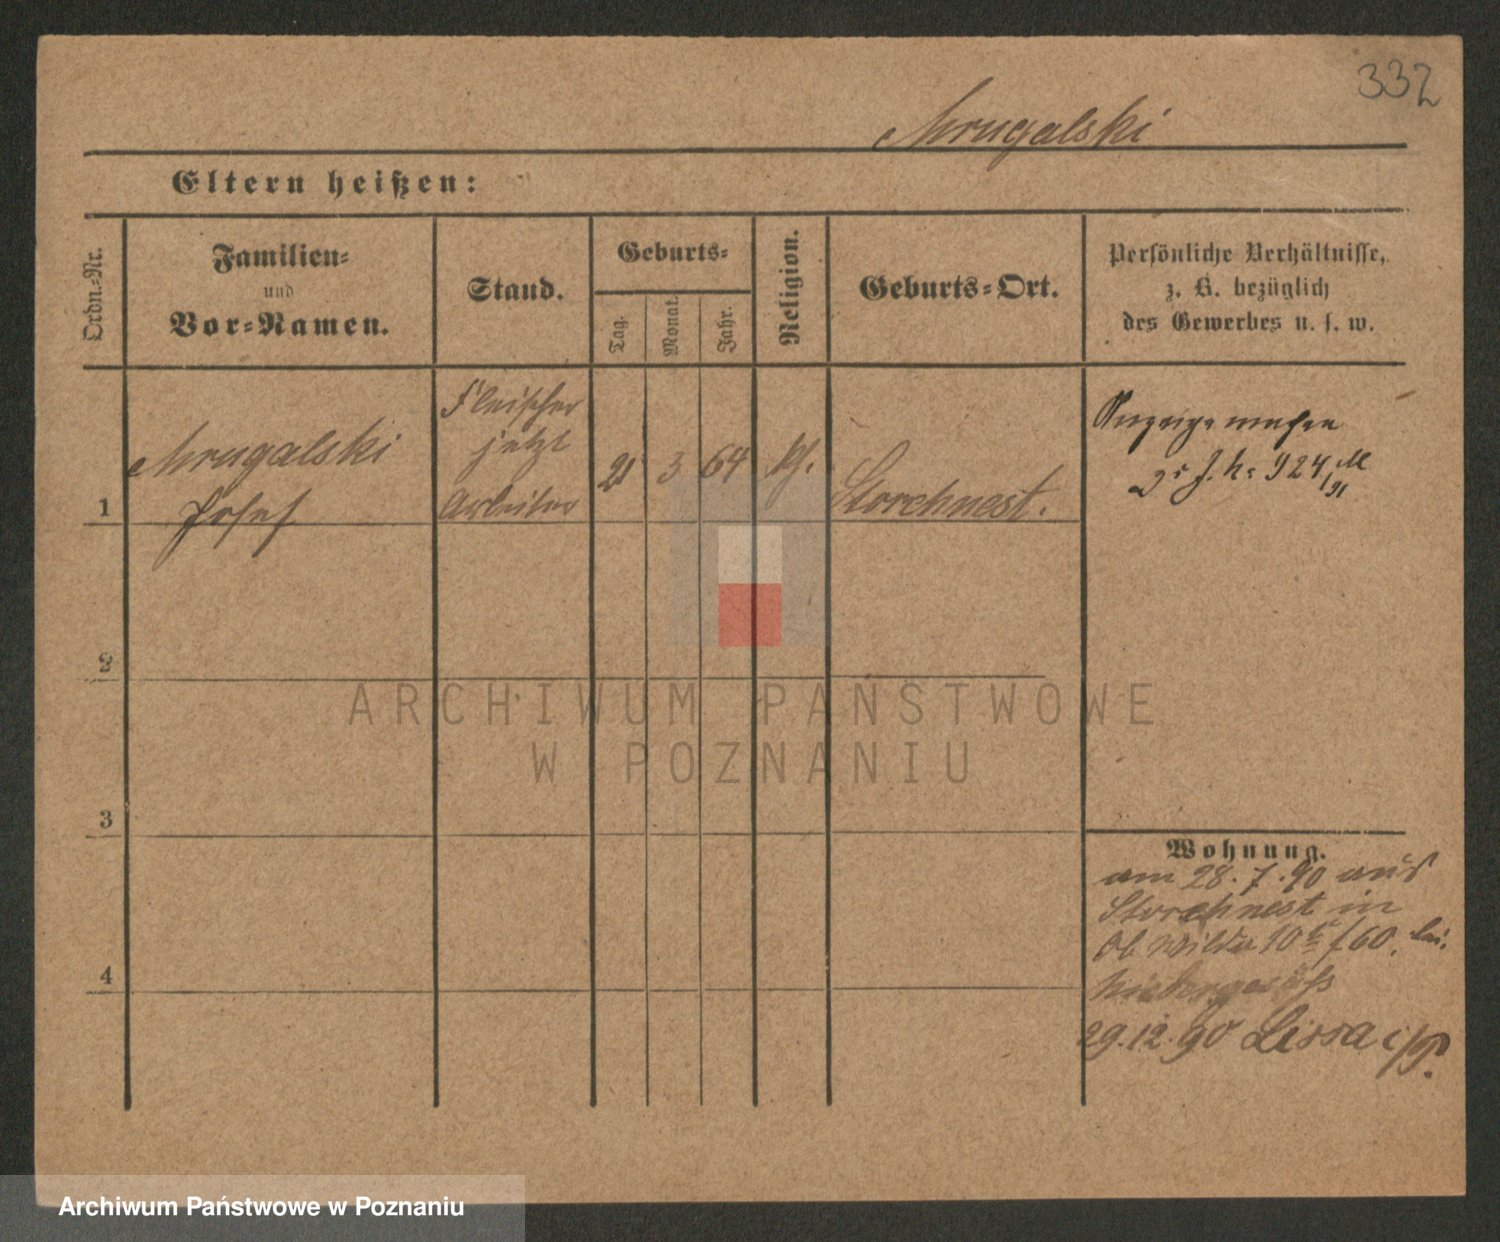 332
Mrugalski
Eltern heißen:
Ordn.-Nr.
Familien-
und
Vor-Namen.
Stand.
Geburts-
Tag.
Monat.
Jahr.
Religion.
Geburts-Ort.
Persönliche Verhältnisse,
z. B. bezüglich
des Gewerbes u. s. w.
1
Mrugalski
Josef
Fleischer
jetzt
Arbeiter
21
3
64
kh.
Storchnest.
Anzeige machen
924/M
91
2
3
4
Wohnung.
am 28.7.90 aus
Storchnest in
Ob Wilda 10 /60. bei
29.12.90 Lissa i/P.
ARCHIWUM PAŃSTWOWE
W POZNANIU
Archiwum Państwowe w Poznaniu